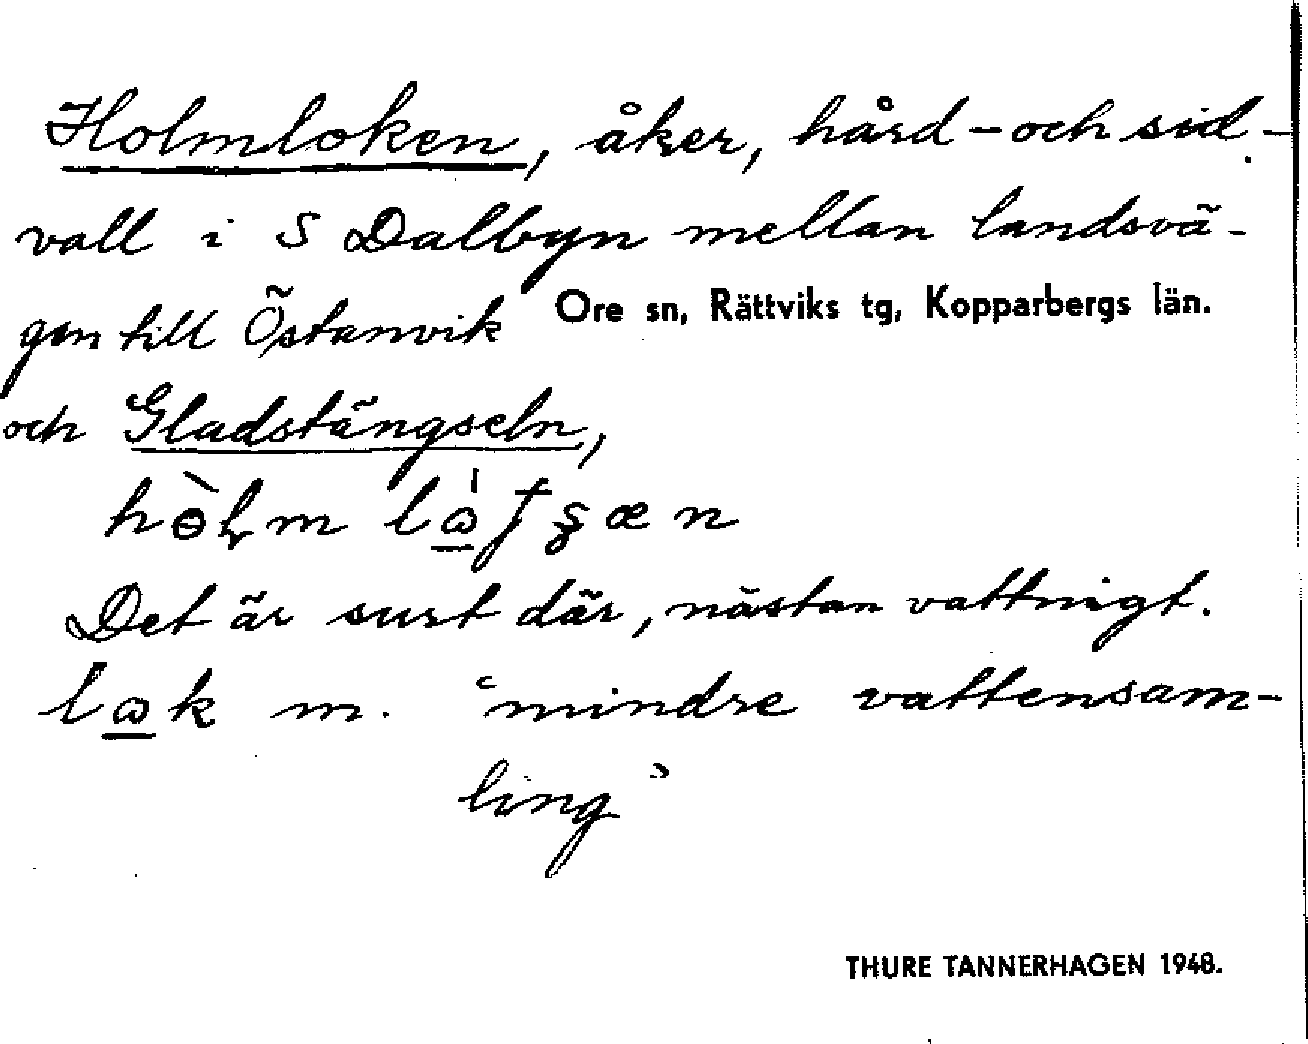 Holmloken, åker, hård- och sid-
vall i S Dalbyn mellan landsvä-
gen till Östanvik
Ore sn, Rättviks tg, Kopparbergs län.
och Gladstängseln,
Det är surt där, nästan vattnigt.
m. "mindre vattensam-
ling"
THURE TANNERHAGEN 1948.